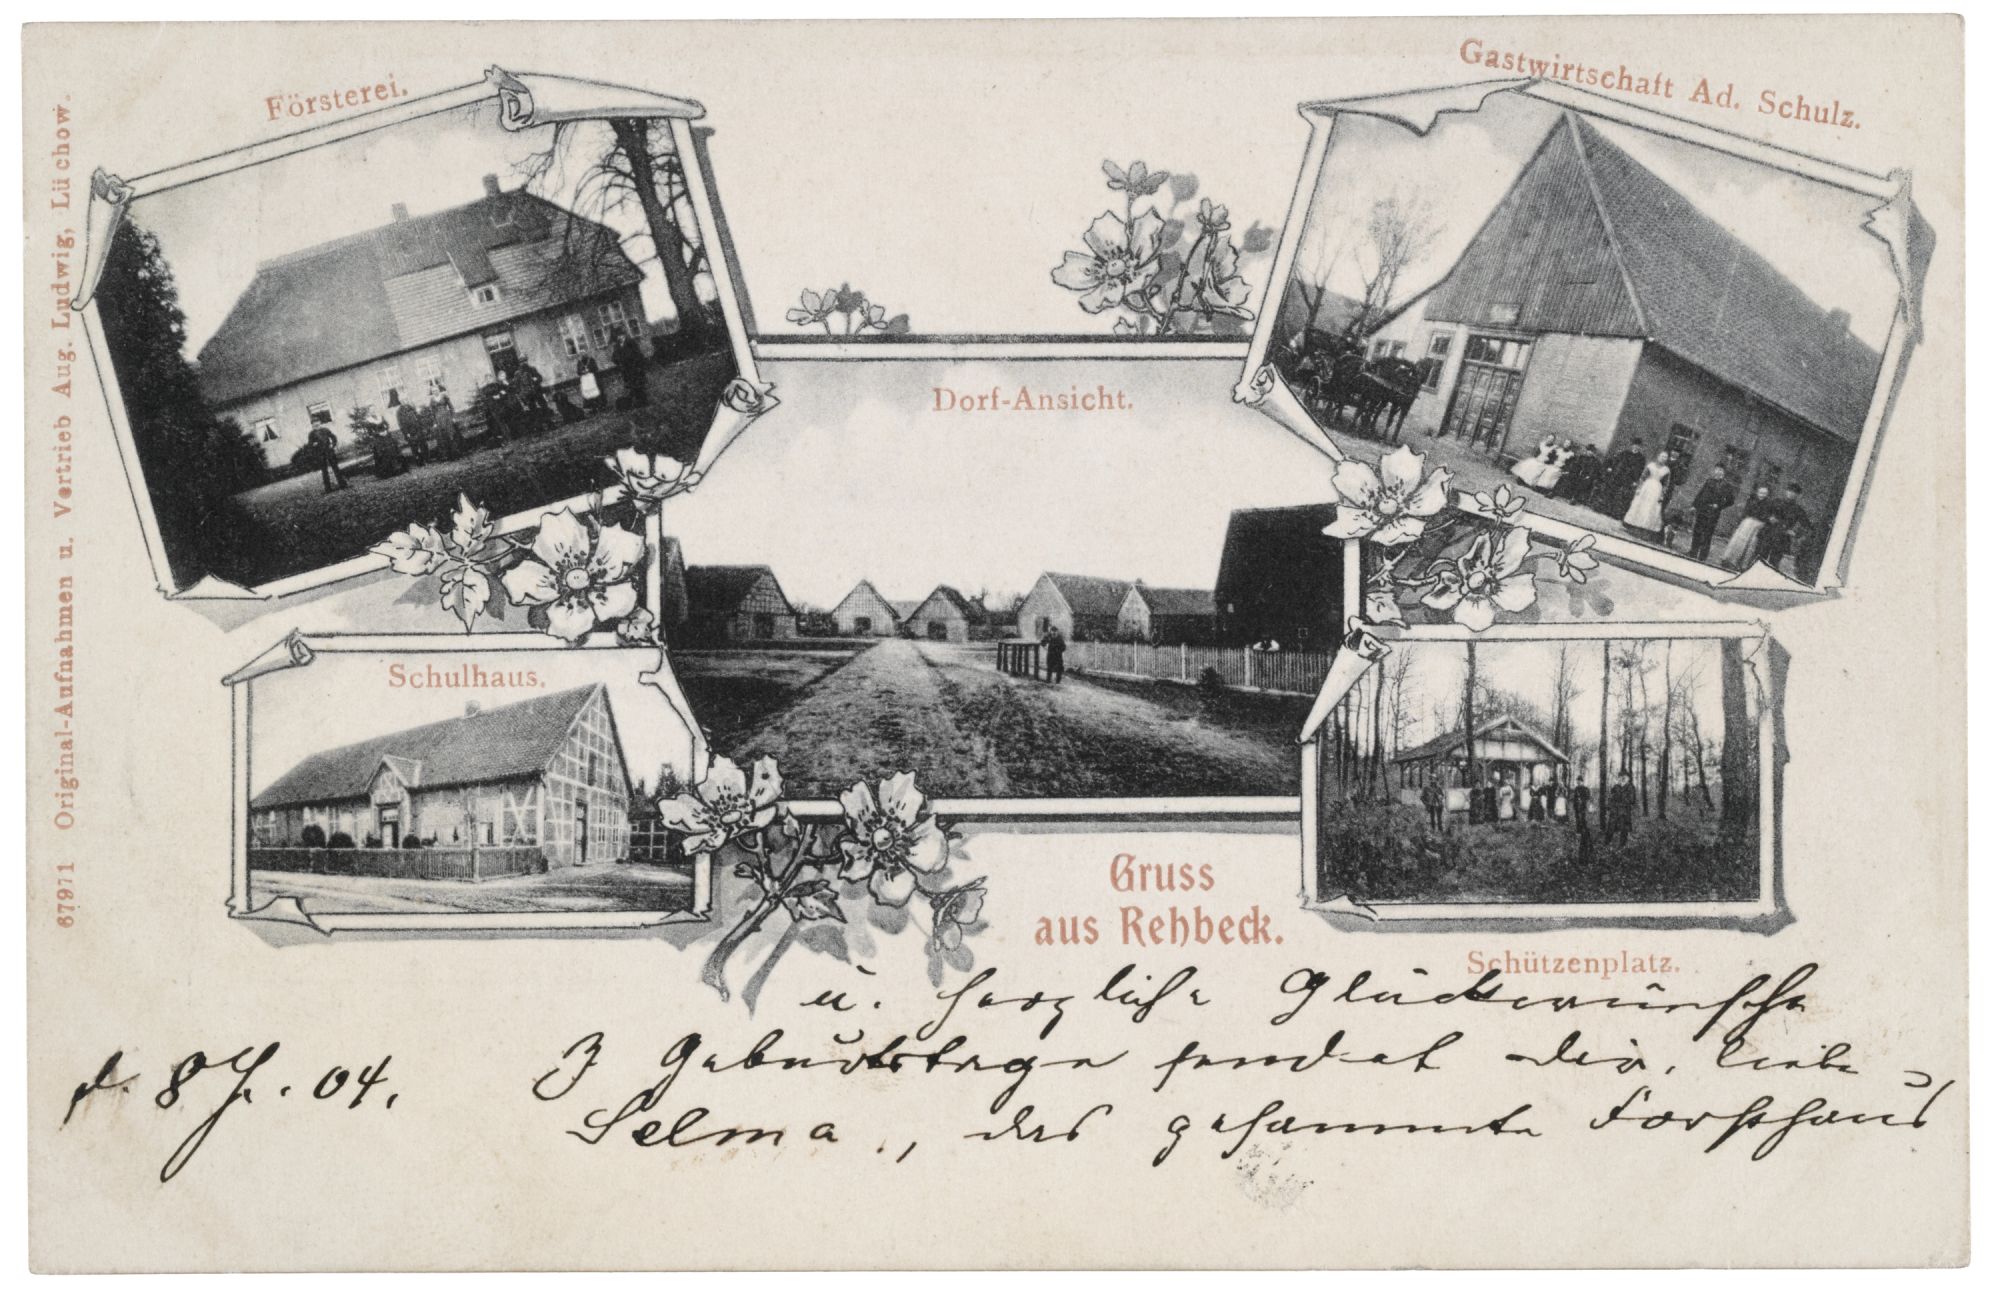 Försterei.
Gastwirtschaft Ad. Schulz.
Dorf-Ansicht.
Schulhaus.
Schützenplatz.
Gruss
aus Rehbeck.
67971 Original-Aufnahmen u. Vertrieb Aug. Ludwig, Lüchow.
u. herzliche Glückwünsche
d. 8 04. z Geburtstage sendet dir, liebe
Selma, das gesammte Forsthaus